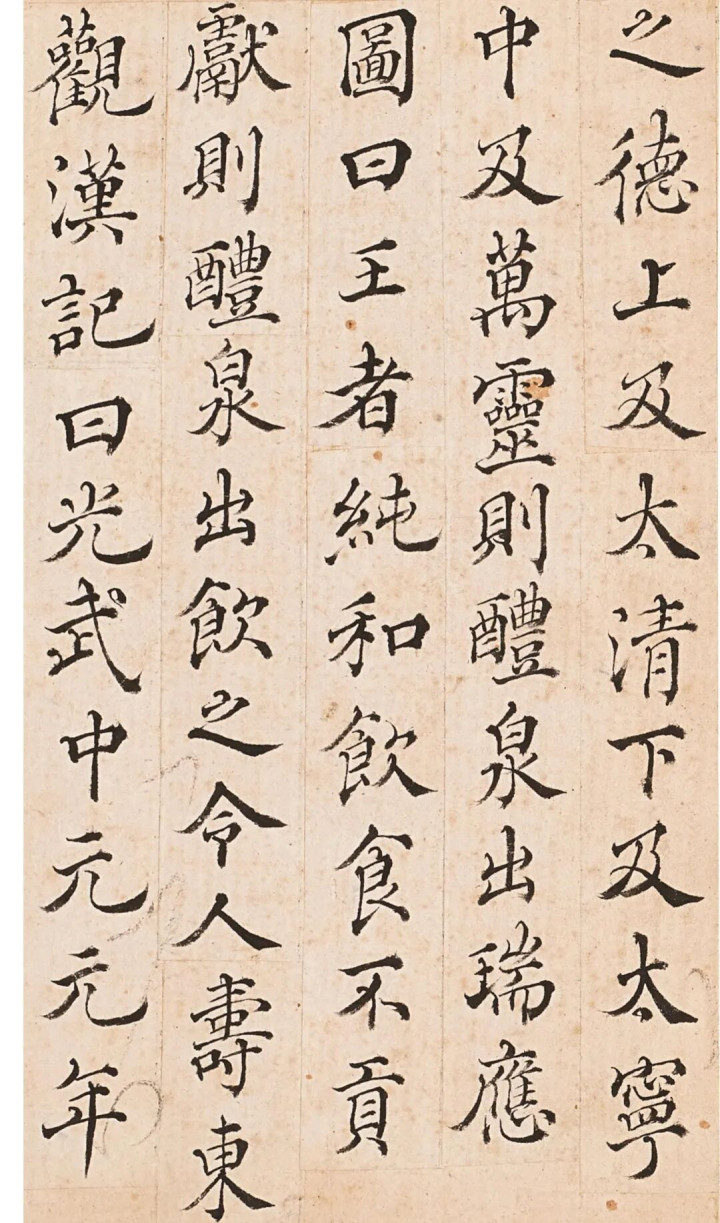 之德上及太清下及太寧
中及萬靈則醴泉出瑞應
圖曰王者純和飲食不貢
獻則醴泉出飲之令人壽東
觀漢記曰光武中元元年